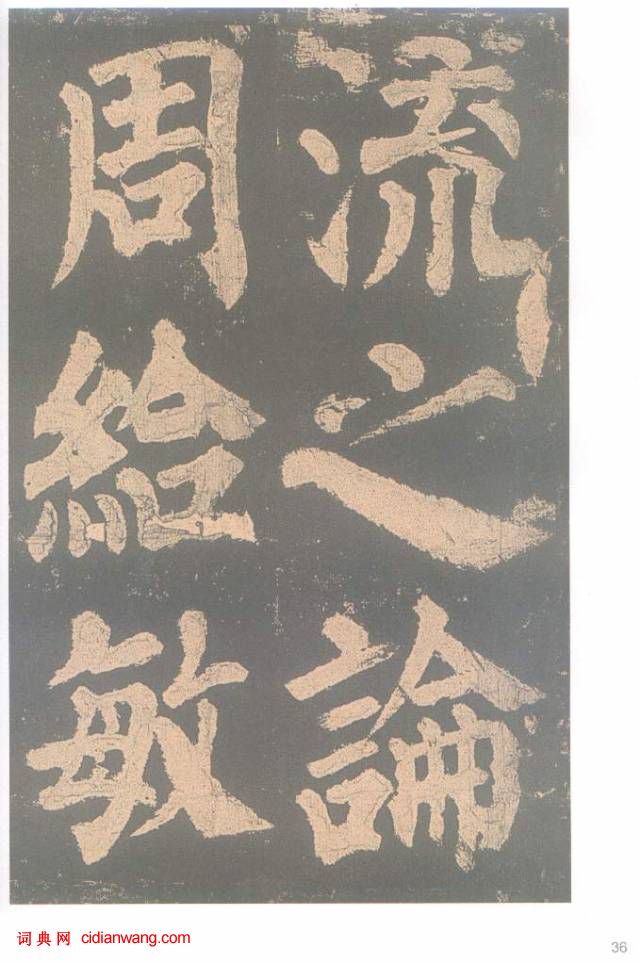 流之論
周給敏
词典网 cidianwang.com
36